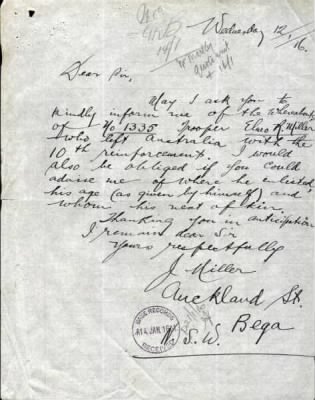 Wednesday 12/1/16.
Dear Sir,
May I ask you to
kindly inform me of the whereabouts
of No 1335 Trooper Elmo R. Miller
who left Australia with the
10th reinforcement, I would
also be obliged if you could
advise me of where he enlisted
his age (as given by himself) and
whom his next of kin.
Thanking you in anticipation
I remain dear Sir
Yours respectfully
J Miller
Auckland St.
Bega
N.S.W.
BASE RECORDS
14 JAN 16
RECEIVED